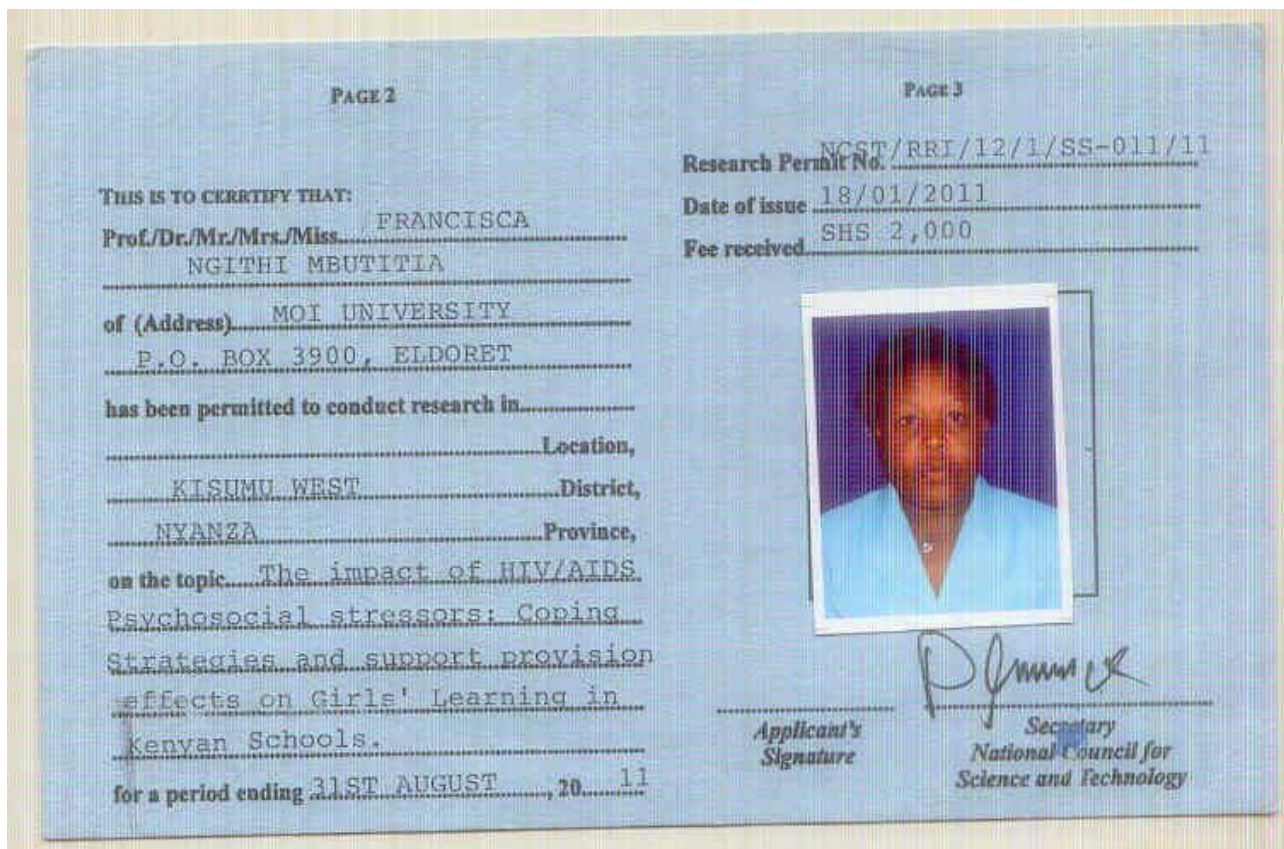 PAGE 2
THIS IS TO CERRTIFY THAT:
Prof./Dr./Mr./Mrs./Miss. FRANCISCA
NGITHI MBUTITIA
of (Address) MOI UNIVERSITY
P.O. BOX 3900, ELDORET
has been permitted to conduct research in
Location,
KISUMU WEST District,
NYANZA Province,
on the topic The impact of HIV/AIDS
Psychosocial stressors: Coping
Strategies and support provision
effects on Girls' Learning in
Kenyan Schools.
for a period ending 31ST AUGUST, 20 11
PAGE 3
Research Permit No. NCST/RRI/12/1/SS-011/11
Date of issue 18/01/2011
Fee received SHS 2,000
Applicant's
Signature
Secretary
National Council for
Science and Technology